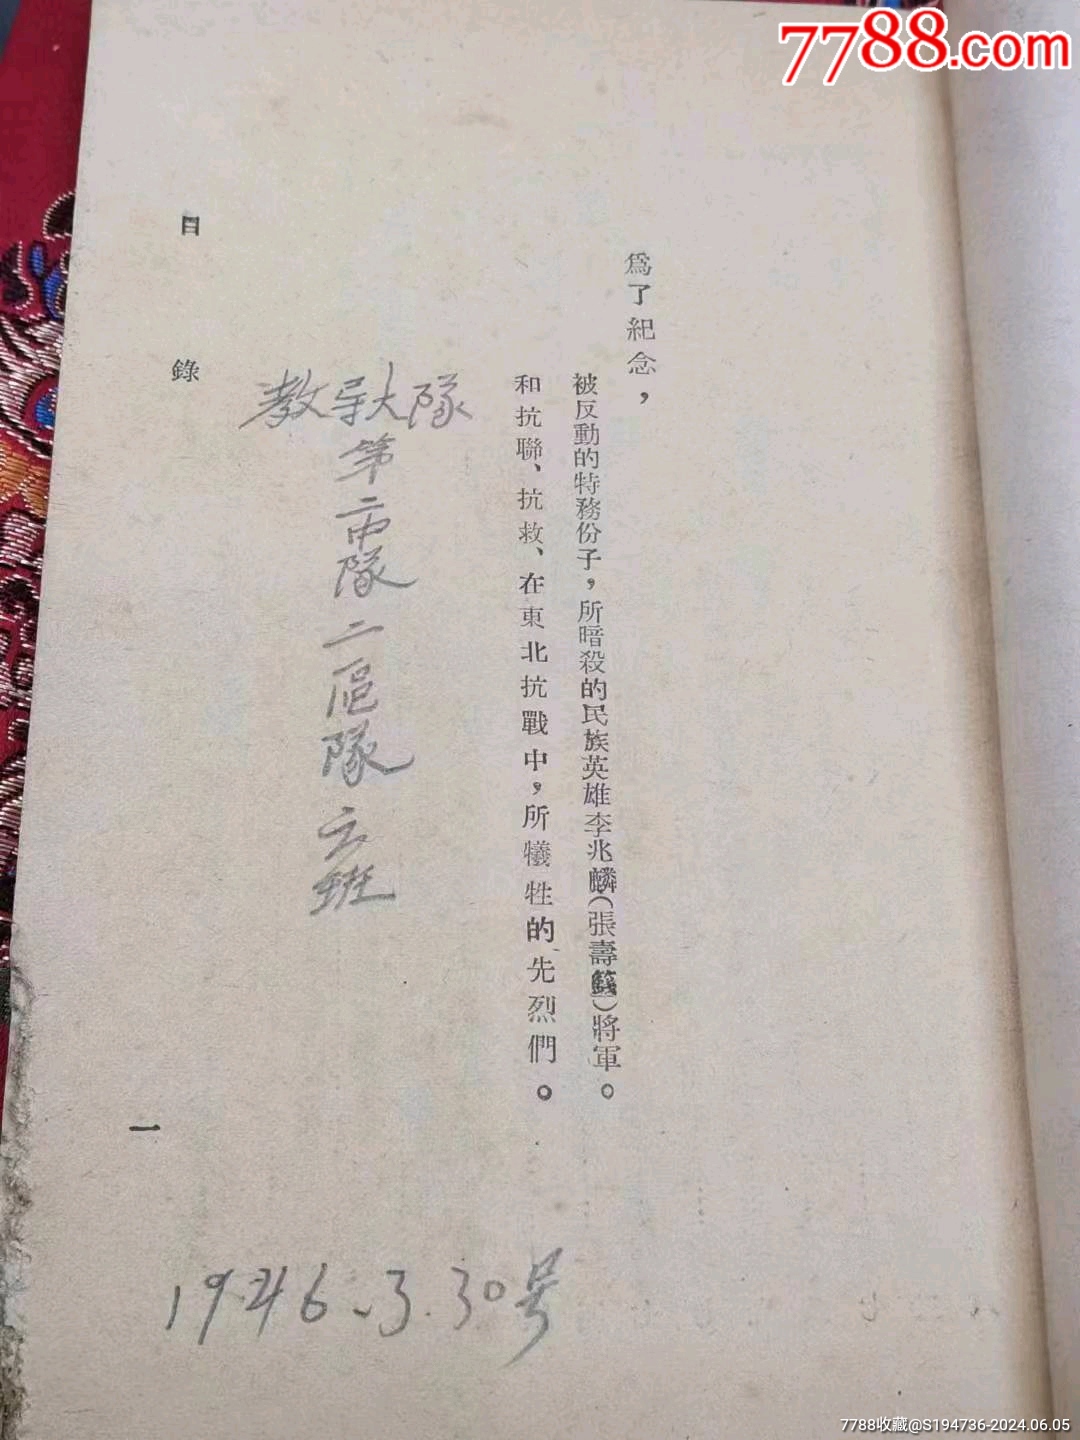 7788.com
為了紀念，
被反動的特務份子，所暗殺的民族英雄李兆麟（張壽籛）將軍。
和抗聯、抗救、在東北抗戰中，所犧牲的先烈們。
教导大隊
第二中隊二區隊六班
目錄
一
1946.3.30号
7788收藏@S194736-2024.06.05